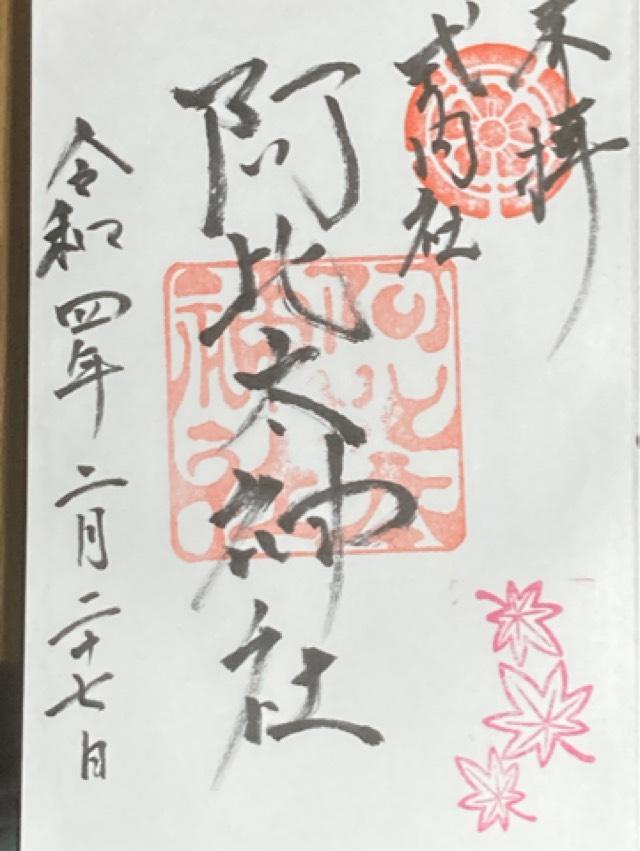 来拝
式内社
阿比太神社
令和四年二月二十七日